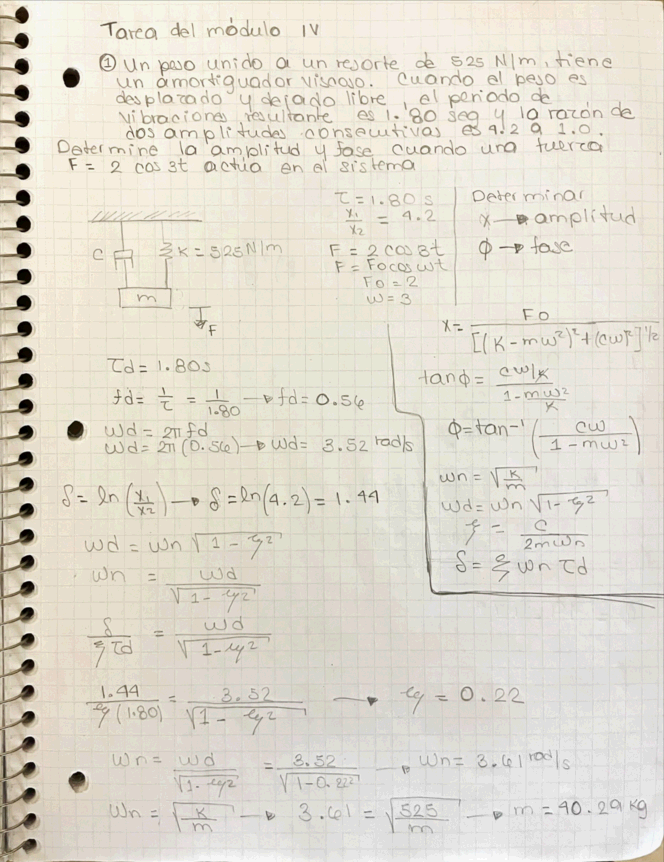 Tarea del módulo IV
① Un peso unido a un resorte de 525 N/m, tiene
un amortiguador viscoso. Cuando el peso es
desplazado y dejado libre, el periodo de
vibraciones resultante es 1.80 seg y la razón de
dos amplitudes consecutivas es 4.2 a 1.0.
Determine la amplitud y fase cuando una fuerza
F = 2 cos 3t actúa en el sistema
τ = 1.80 s
x₁/x₂ = 4.2
F = 2 cos 3t
F = Fo cos ωt
Fo = 2
ω = 3
Determinar
x → amplitud
φ → fase
C
K = 525 N/m
m
F
x = Fo / [(K - mω²)² + (cω)²]^1/2
tanφ = (cω/K) / (1 - mω²/K)
φ = tan⁻¹ (cω / 1 - mω²)
ωn = √(K/m)
ωd = ωn √(1 - ξ²)
ξ = C / 2mωn
δ = ξ ωn τd
τd = 1.80s
fd = 1/τ = 1/1.80 → fd = 0.56
ωd = 2π fd
ωd = 2π (0.56) → ωd = 3.52 rad/s
δ = ln(x₁/x₂) → δ = ln(4.2) = 1.44
ωd = ωn √(1 - ξ²)
ωn = ωd / √(1 - ξ²)
δ / ξ τd = ωd / √(1 - ξ²)
1.44 / ξ(1.80) = 3.52 / √(1 - ξ²) → ξ = 0.22
ωn = ωd / √(1 - ξ²) = 3.52 / √(1 - 0.22²) → ωn = 3.61 rad/s
ωn = √(K/m) → 3.61 = √(525/m) → m = 40.29 kg